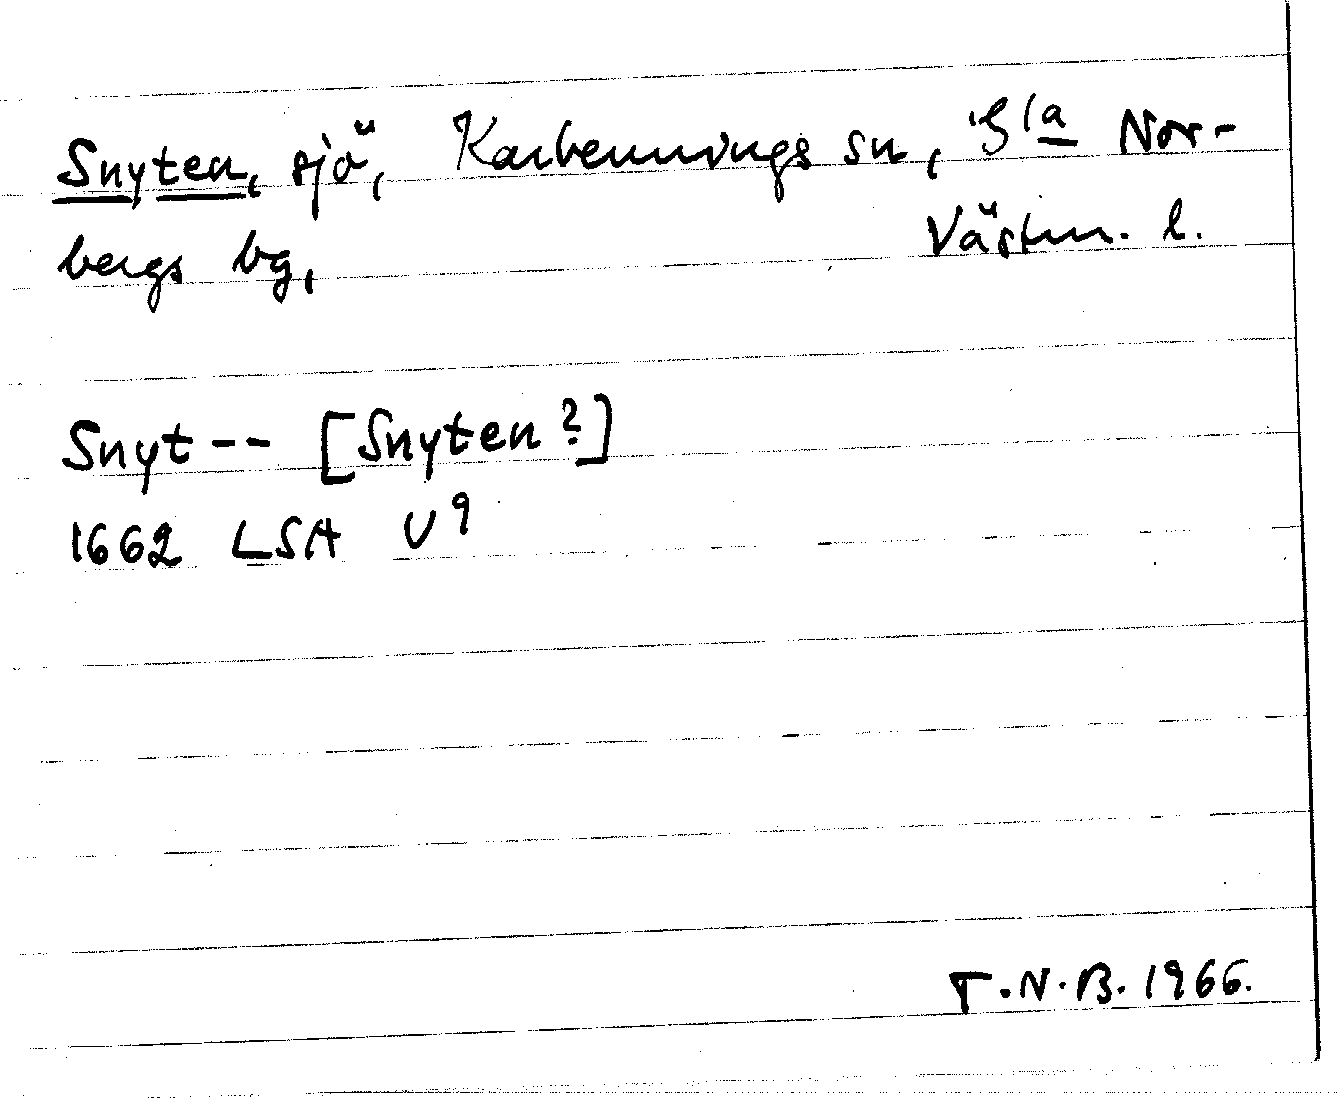 Snyten, sjö, Karbennings sn, Gla Nor-
bergs bg, Västm. l.
Snyt-- [Snyten?]
1662 LSA U9
T.N.B. 1966.